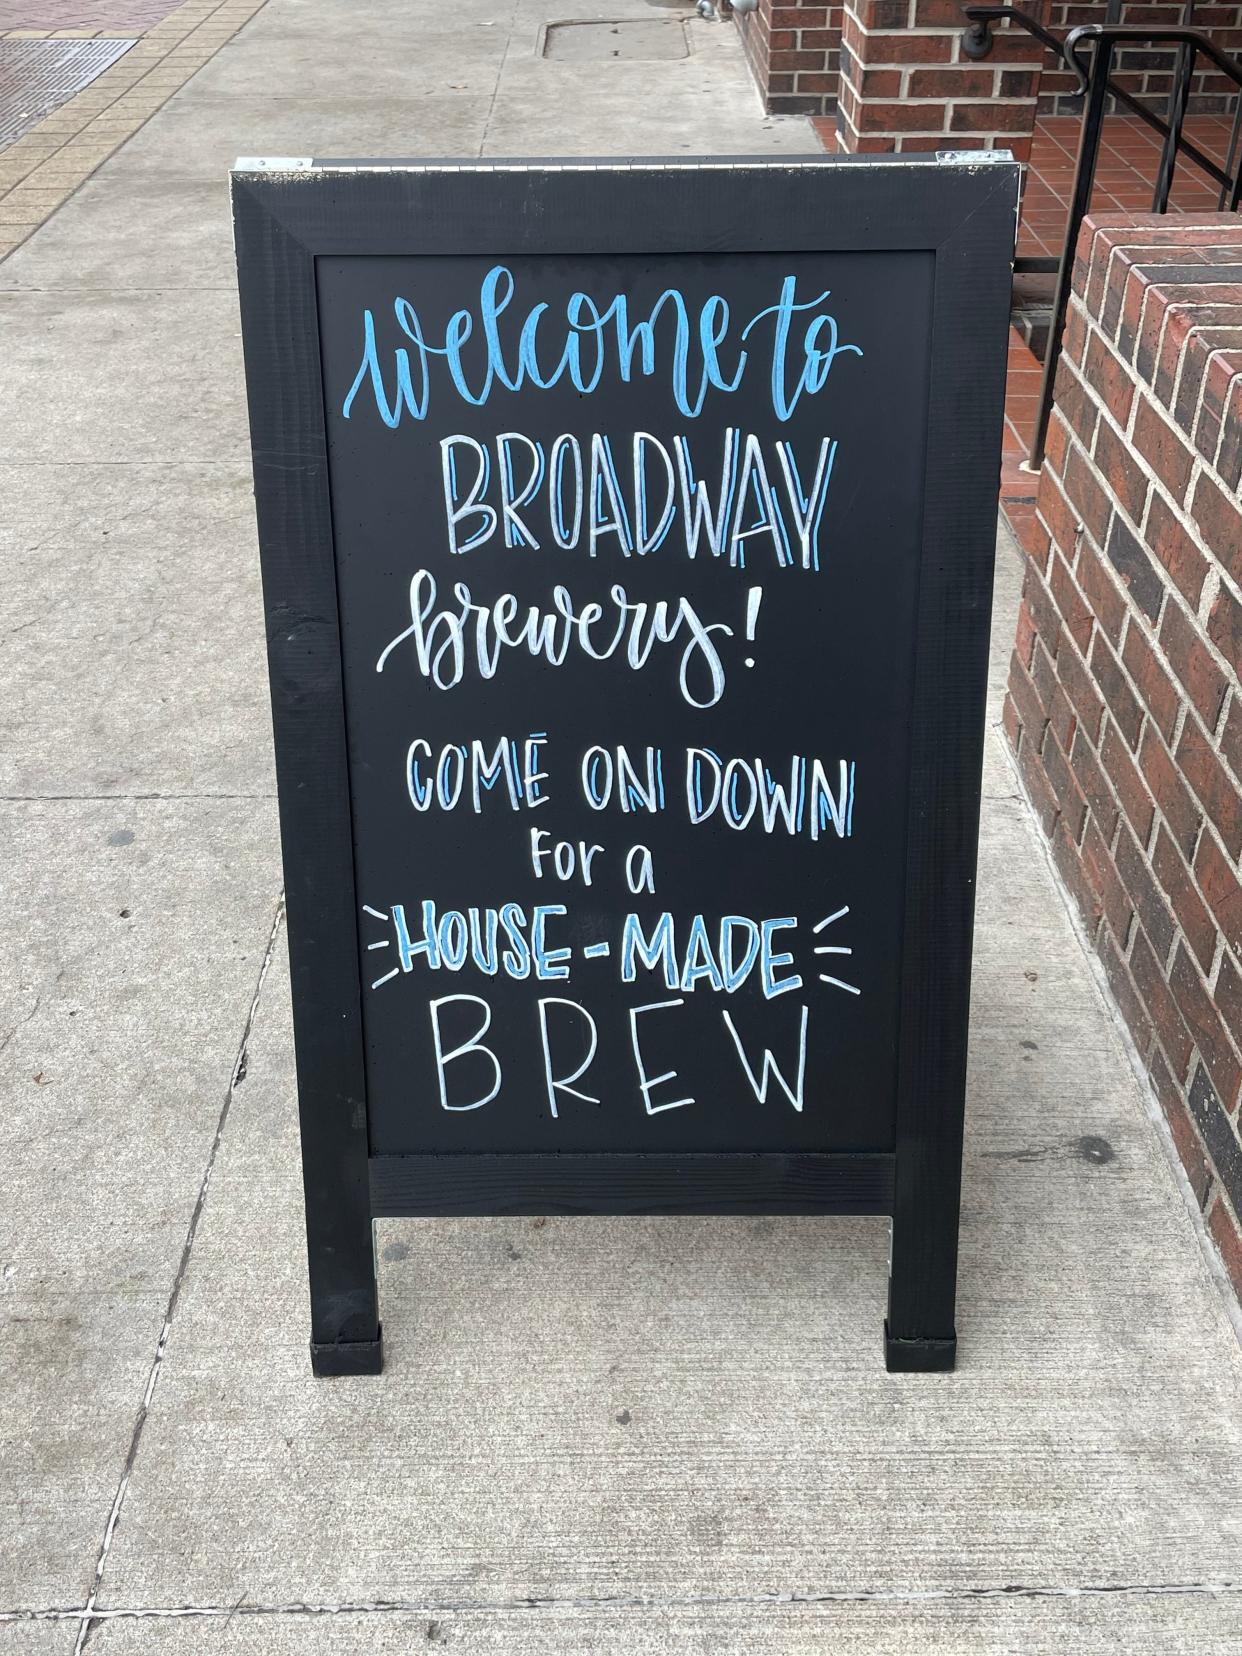 welcome to
BROADWAY
brewery!
COME ON DOWN
For a
HOUSE-MADE
BREW